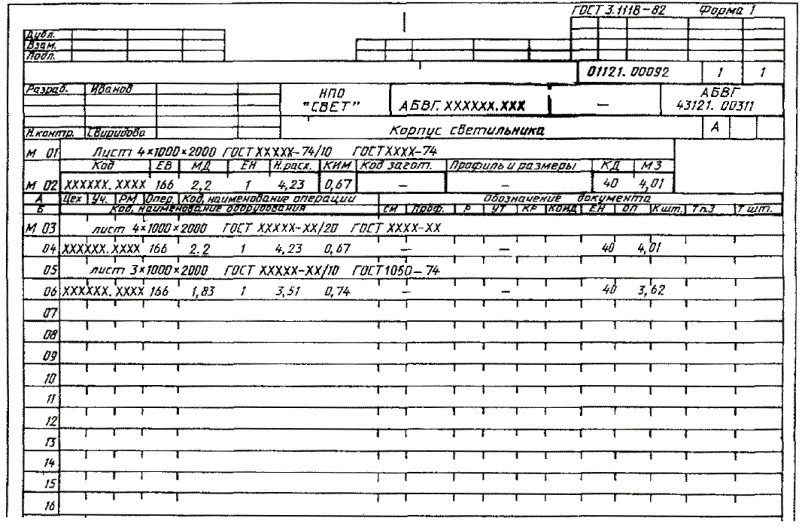 ГОСТ 3.1118-82 Форма 1
Дубл.
Взам.
Подл.
01121.00092 1 1
Разраб. Иванов НПО "СВЕТ" АБВГ.XXXXXX.XXX — АБВГ 43121.00311
Н.контр. Свиридова Корпус светильника А
М 01 Лист 4×1000×2000 ГОСТ XXXXX-74/10 ГОСТ XXXX-74
Код ЕВ МД ЕН Н.расх. КИМ Код загот. Профиль и размеры КД МЗ
М 02 XXXXXX.XXXX 166 2,2 1 4,23 0,67 — — 40 4,01
А Цех Уч. РМ Опер. Код, наименование операции Обозначение документа
Б Код, наименование оборудования СМ Проф. Р УТ КР КОИД ЕН ОП Кшт. Тп.з Т шт.
М 03 лист 4×1000×2000 ГОСТ XXXXX-XX/20 ГОСТ XXXX-XX
04 XXXXXX.XXXX 166 2.2 1 4,23 0,67 — — 40 4,01
05 лист 3×1000×2000 ГОСТ XXXXX-XX/10 ГОСТ 1050-74
06 XXXXXX.XXXX 166 1,83 1 3,51 0,74 — — 40 3,62
07
08
09
10
11
12
13
14
15
16